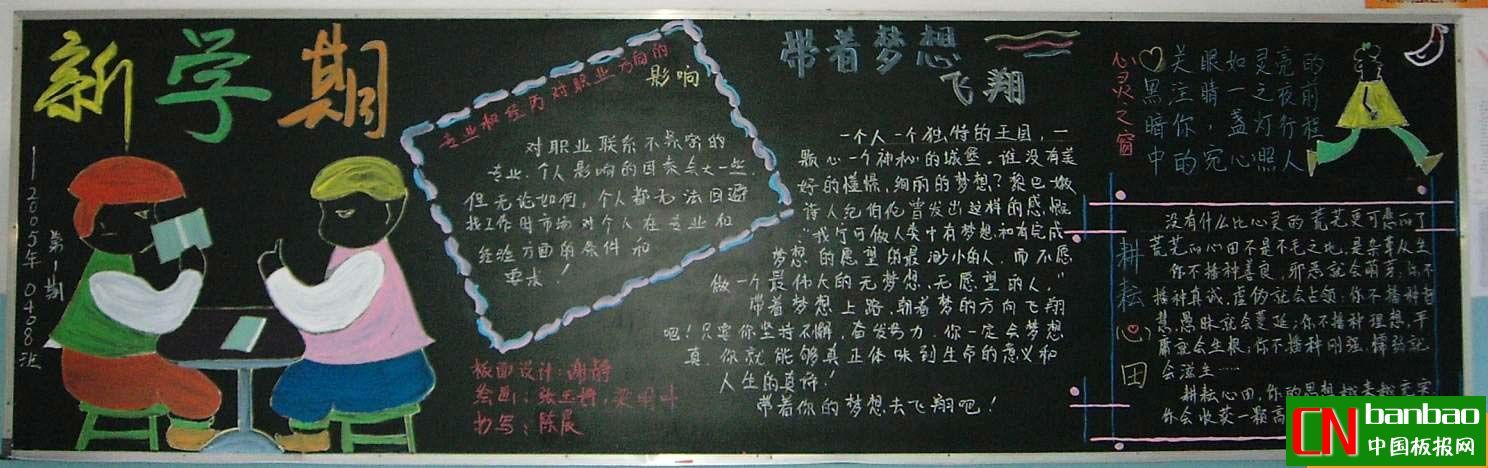 新学期
2005年
第1期
0408法
专业和经历对职业方向的
影响
对职业联系不紧密的
专业,个人影响的因素会大一些,
但无论如何,个人都无法回避
找工作时市场对个人在专业和
经济方面的条件和
要求!
版面设计:谢静
绘画:张玉梅,梁明斗
书写:陈晨
带着梦想
飞翔
一个人一个独特的王国,一
颗心一个神秘的城堡。谁没有美
好的憧憬,绚丽的梦想?黎巴嫩
诗人纪伯伦曾发出这样的感慨
"我宁可做人类中有梦想和有完成
梦想的愿望的最渺小的人,而不愿
做一个最伟大的无梦想、无愿望的人。"
带着梦想上路,朝着梦的方向飞翔
吧!只要你坚持不懈,奋发努力,你一定会梦想
真,你就能够真正体味到生命的意义和
人生的真谛!
带着你的梦想,去飞翔吧!
心灵之窗
关眼如灵亮的
黑注睛一之夜前
暗你,盏灯行程
中的宛心照人
耕耘心田
没有什么比心灵的荒芜更可悲的了
荒芜的心田不是不毛之地,是杂草丛生
你不播种善良,邪恶就会萌芽;你不
播种真诚,虚伪就会占领;你不播种智
慧,愚昧就会蔓延;你不播种理想,平
庸就会生根;你不播种刚强,懦弱就
会滋生……
耕耘心田,你的思想越来越充实
你会收获一颗高
CN banbao
中国板报网